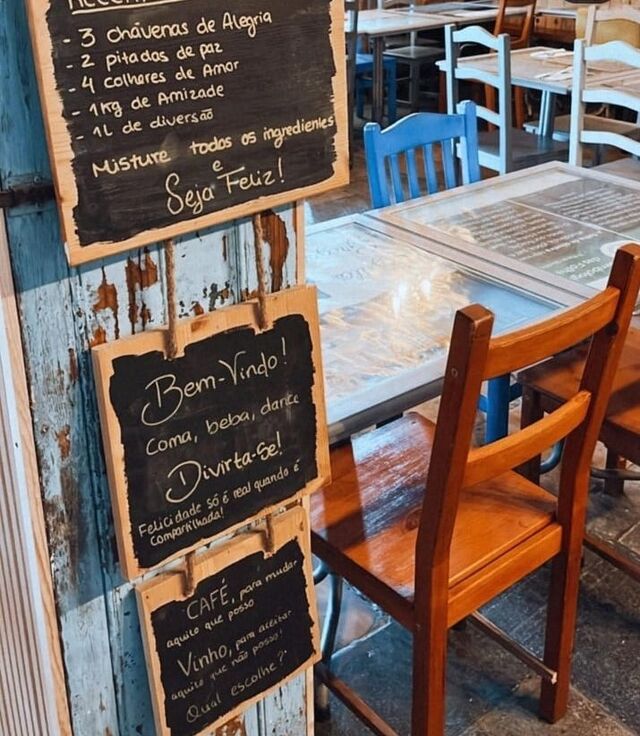 - 3 chávenas de Alegria
- 2 pitadas de paz
- 4 colheres de Amor
- 1Kg de Amizade
- 1L de diversão
Misture todos os ingredientes
e
Seja Feliz!
Bem-Vindo!
Coma, beba, dance
Divirta-Se!
Felicidade só é real quando é
compartilhada!
CAFÉ, para mudar
aquilo que posso
Vinho, para aceitar
aquilo que não posso!
Qual escolhe?